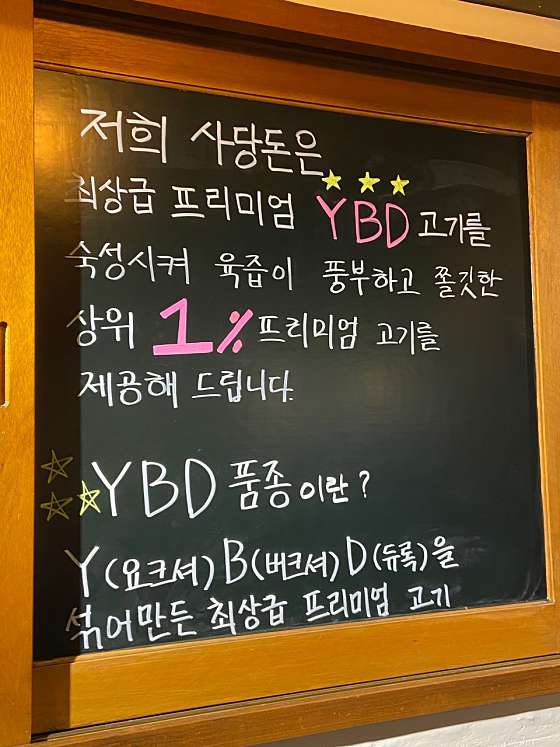 저희 사당돈은
최상급 프리미엄 YBD 고기를
숙성시켜 육즙이 풍부하고 쫄깃한
상위 1% 프리미엄 고기를
제공해 드립니다.
YBD 품종이란?
Y(요크셔) B(버크셔) D(듀록)을
섞어만든 최상급 프리미엄 고기